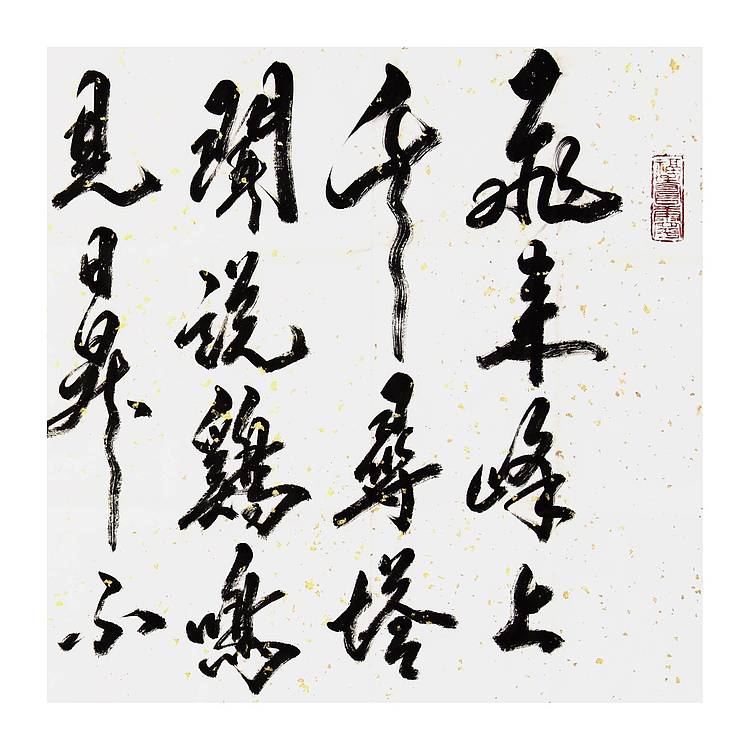 飛来峰上
千尋塔
聞說鷄鳴
見日昇不